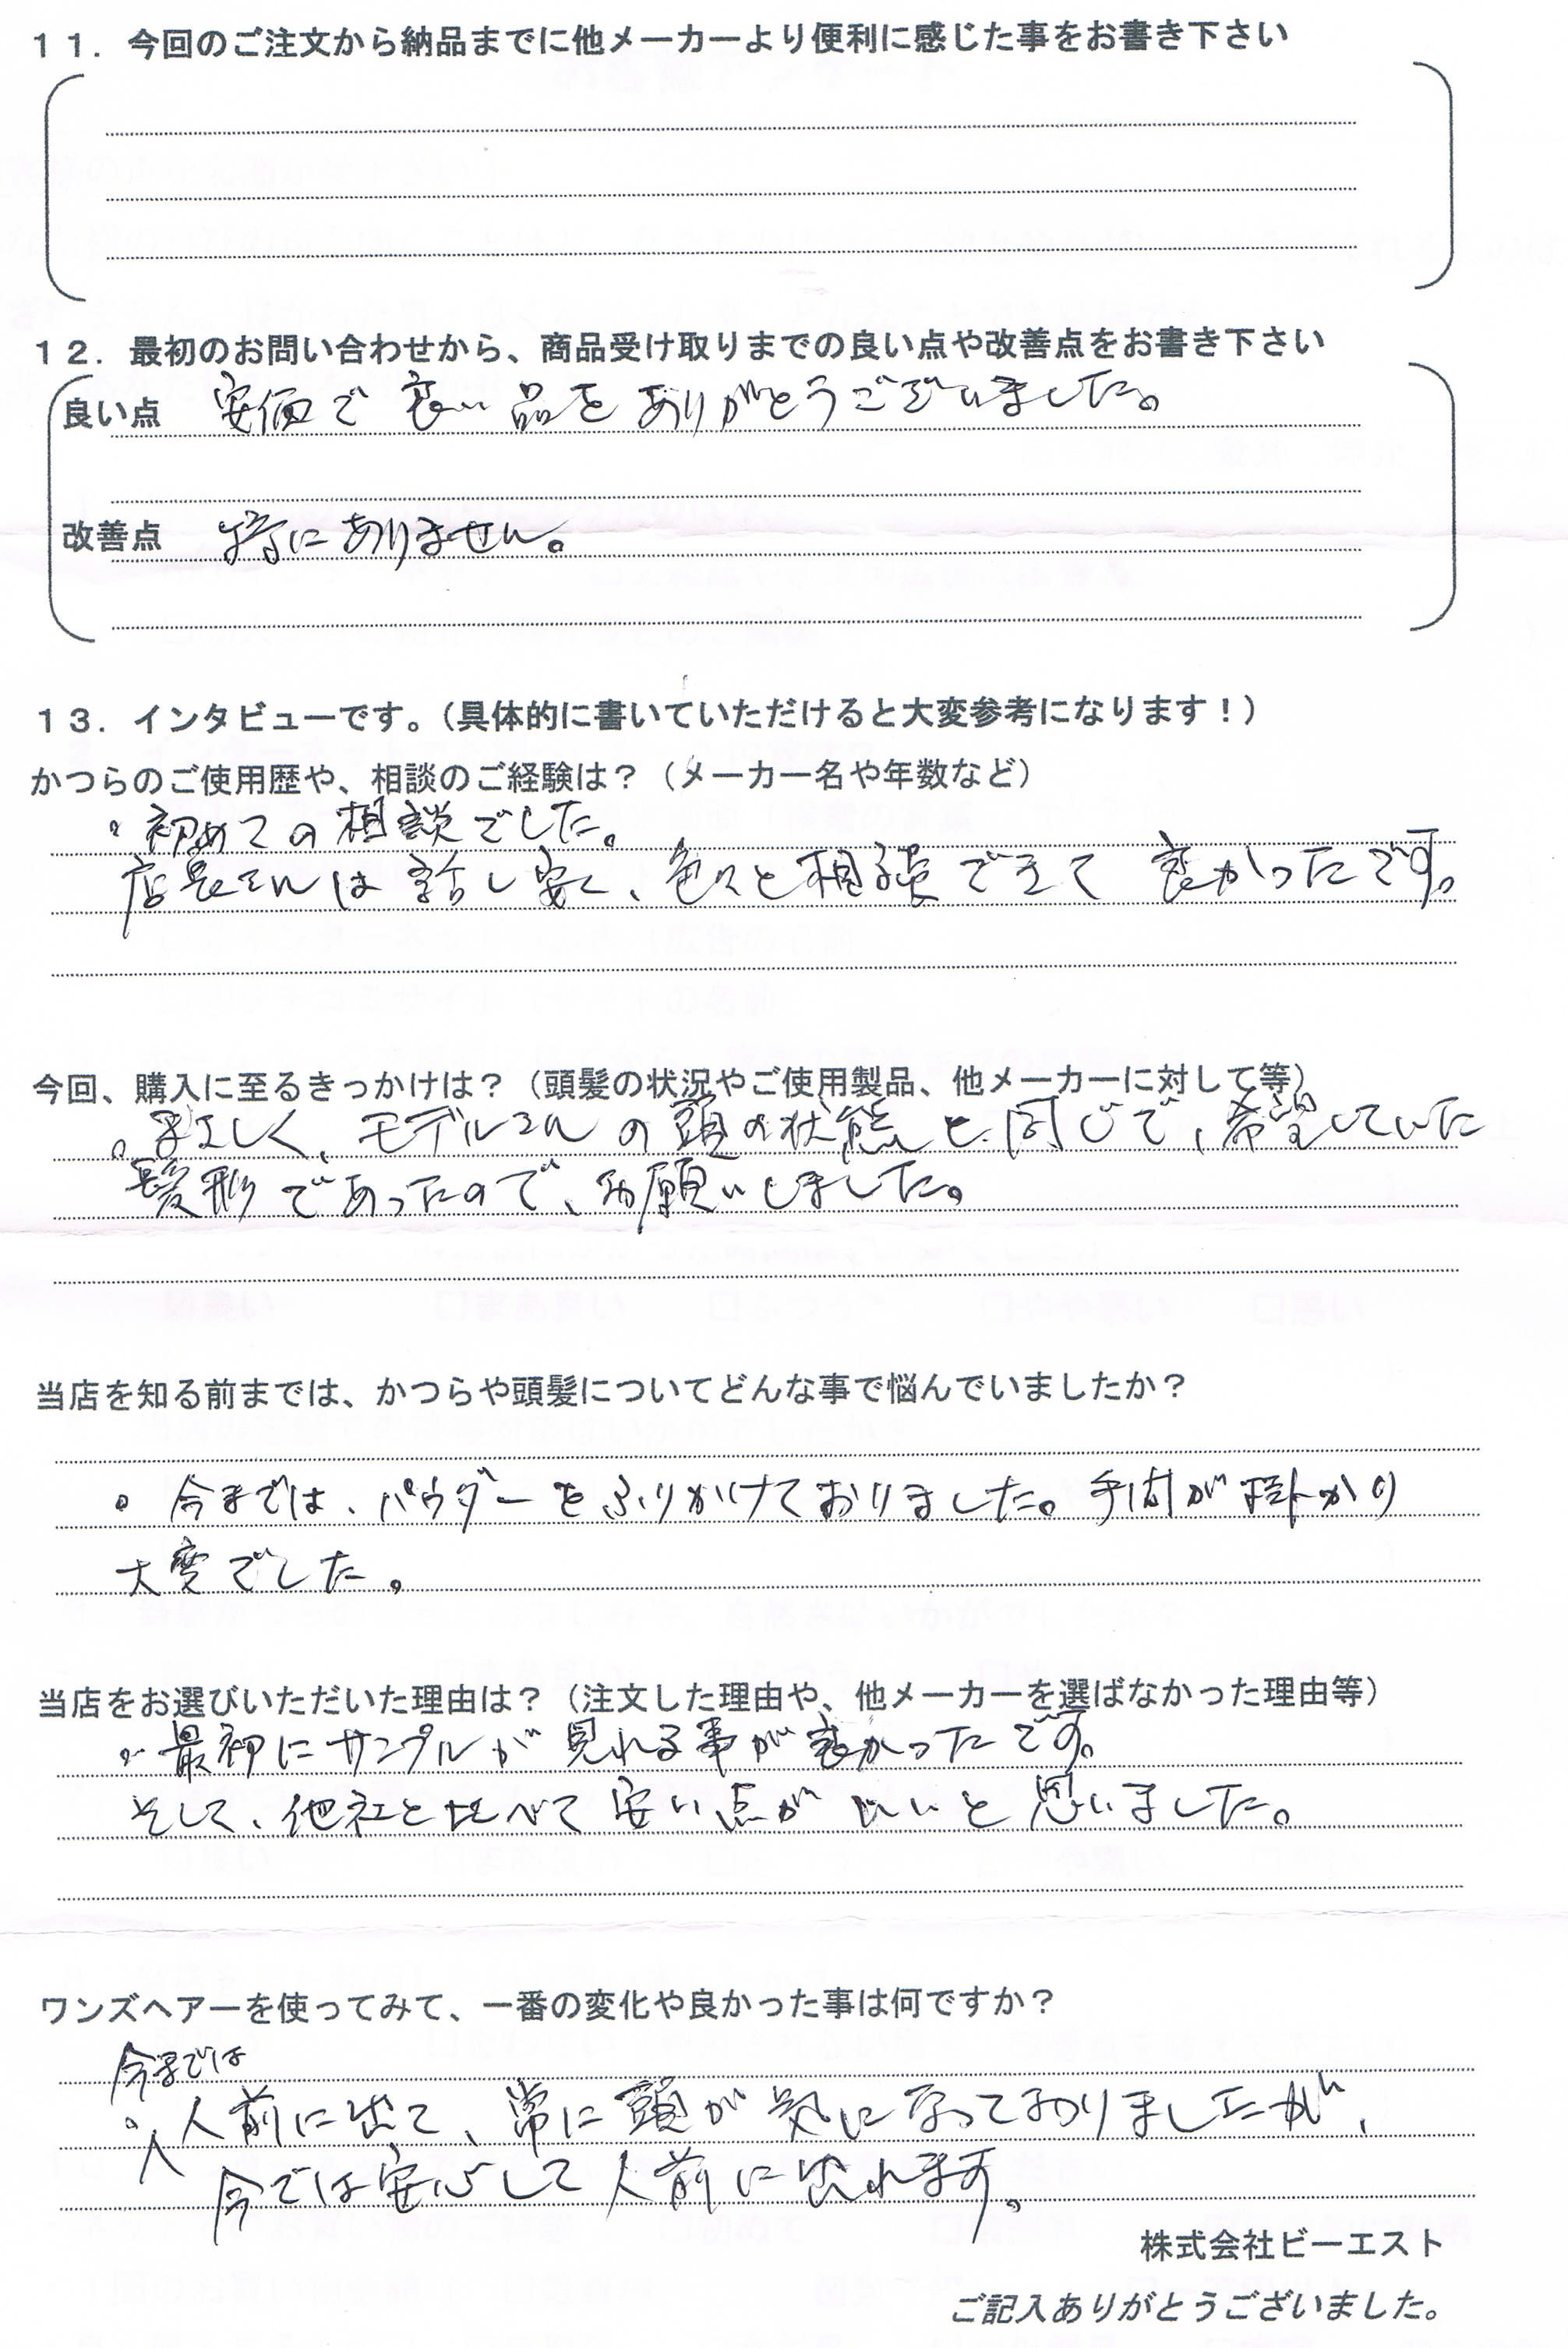 １１．今回のご注文から納品までに他メーカーより便利に感じた事をお書き下さい
１２．最初のお問い合わせから、商品受け取りまでの良い点や改善点をお書き下さい
良い点 安価で良い品をありがとうございました。
改善点 特にありません。
１３．インタビューです。（具体的に書いていただけると大変参考になります！）
かつらのご使用歴や、相談のご経験は？（メーカー名や年数など）
・初めての相談でした。
店長さんは話し安く、色々と相談できて良かったです。
今回、購入に至るきっかけは？（頭髪の状況やご使用製品、他メーカーに対して等）
。しく、モデルさんの頭の状態と同じで、希望していた
髪形であったので、お願いしました。
当店を知る前までは、かつらや頭髪についてどんな事で悩んでいましたか？
。今までは、パウダーをふりかけておりました。手間が掛かり
大変でした。
当店をお選びいただいた理由は？（注文した理由や、他メーカーを選ばなかった理由等）
・最初にサンプルが見れる事が良かったです。
そして、他社と比べて安い点がいいと思いました。
ワンズヘアーを使ってみて、一番の変化や良かった事は何ですか？
今までは
。人前に出て、常に頭が気になっておりましたが、
今では安心して人前に出れます。
株式会社ビーエスト
ご記入ありがとうございました。